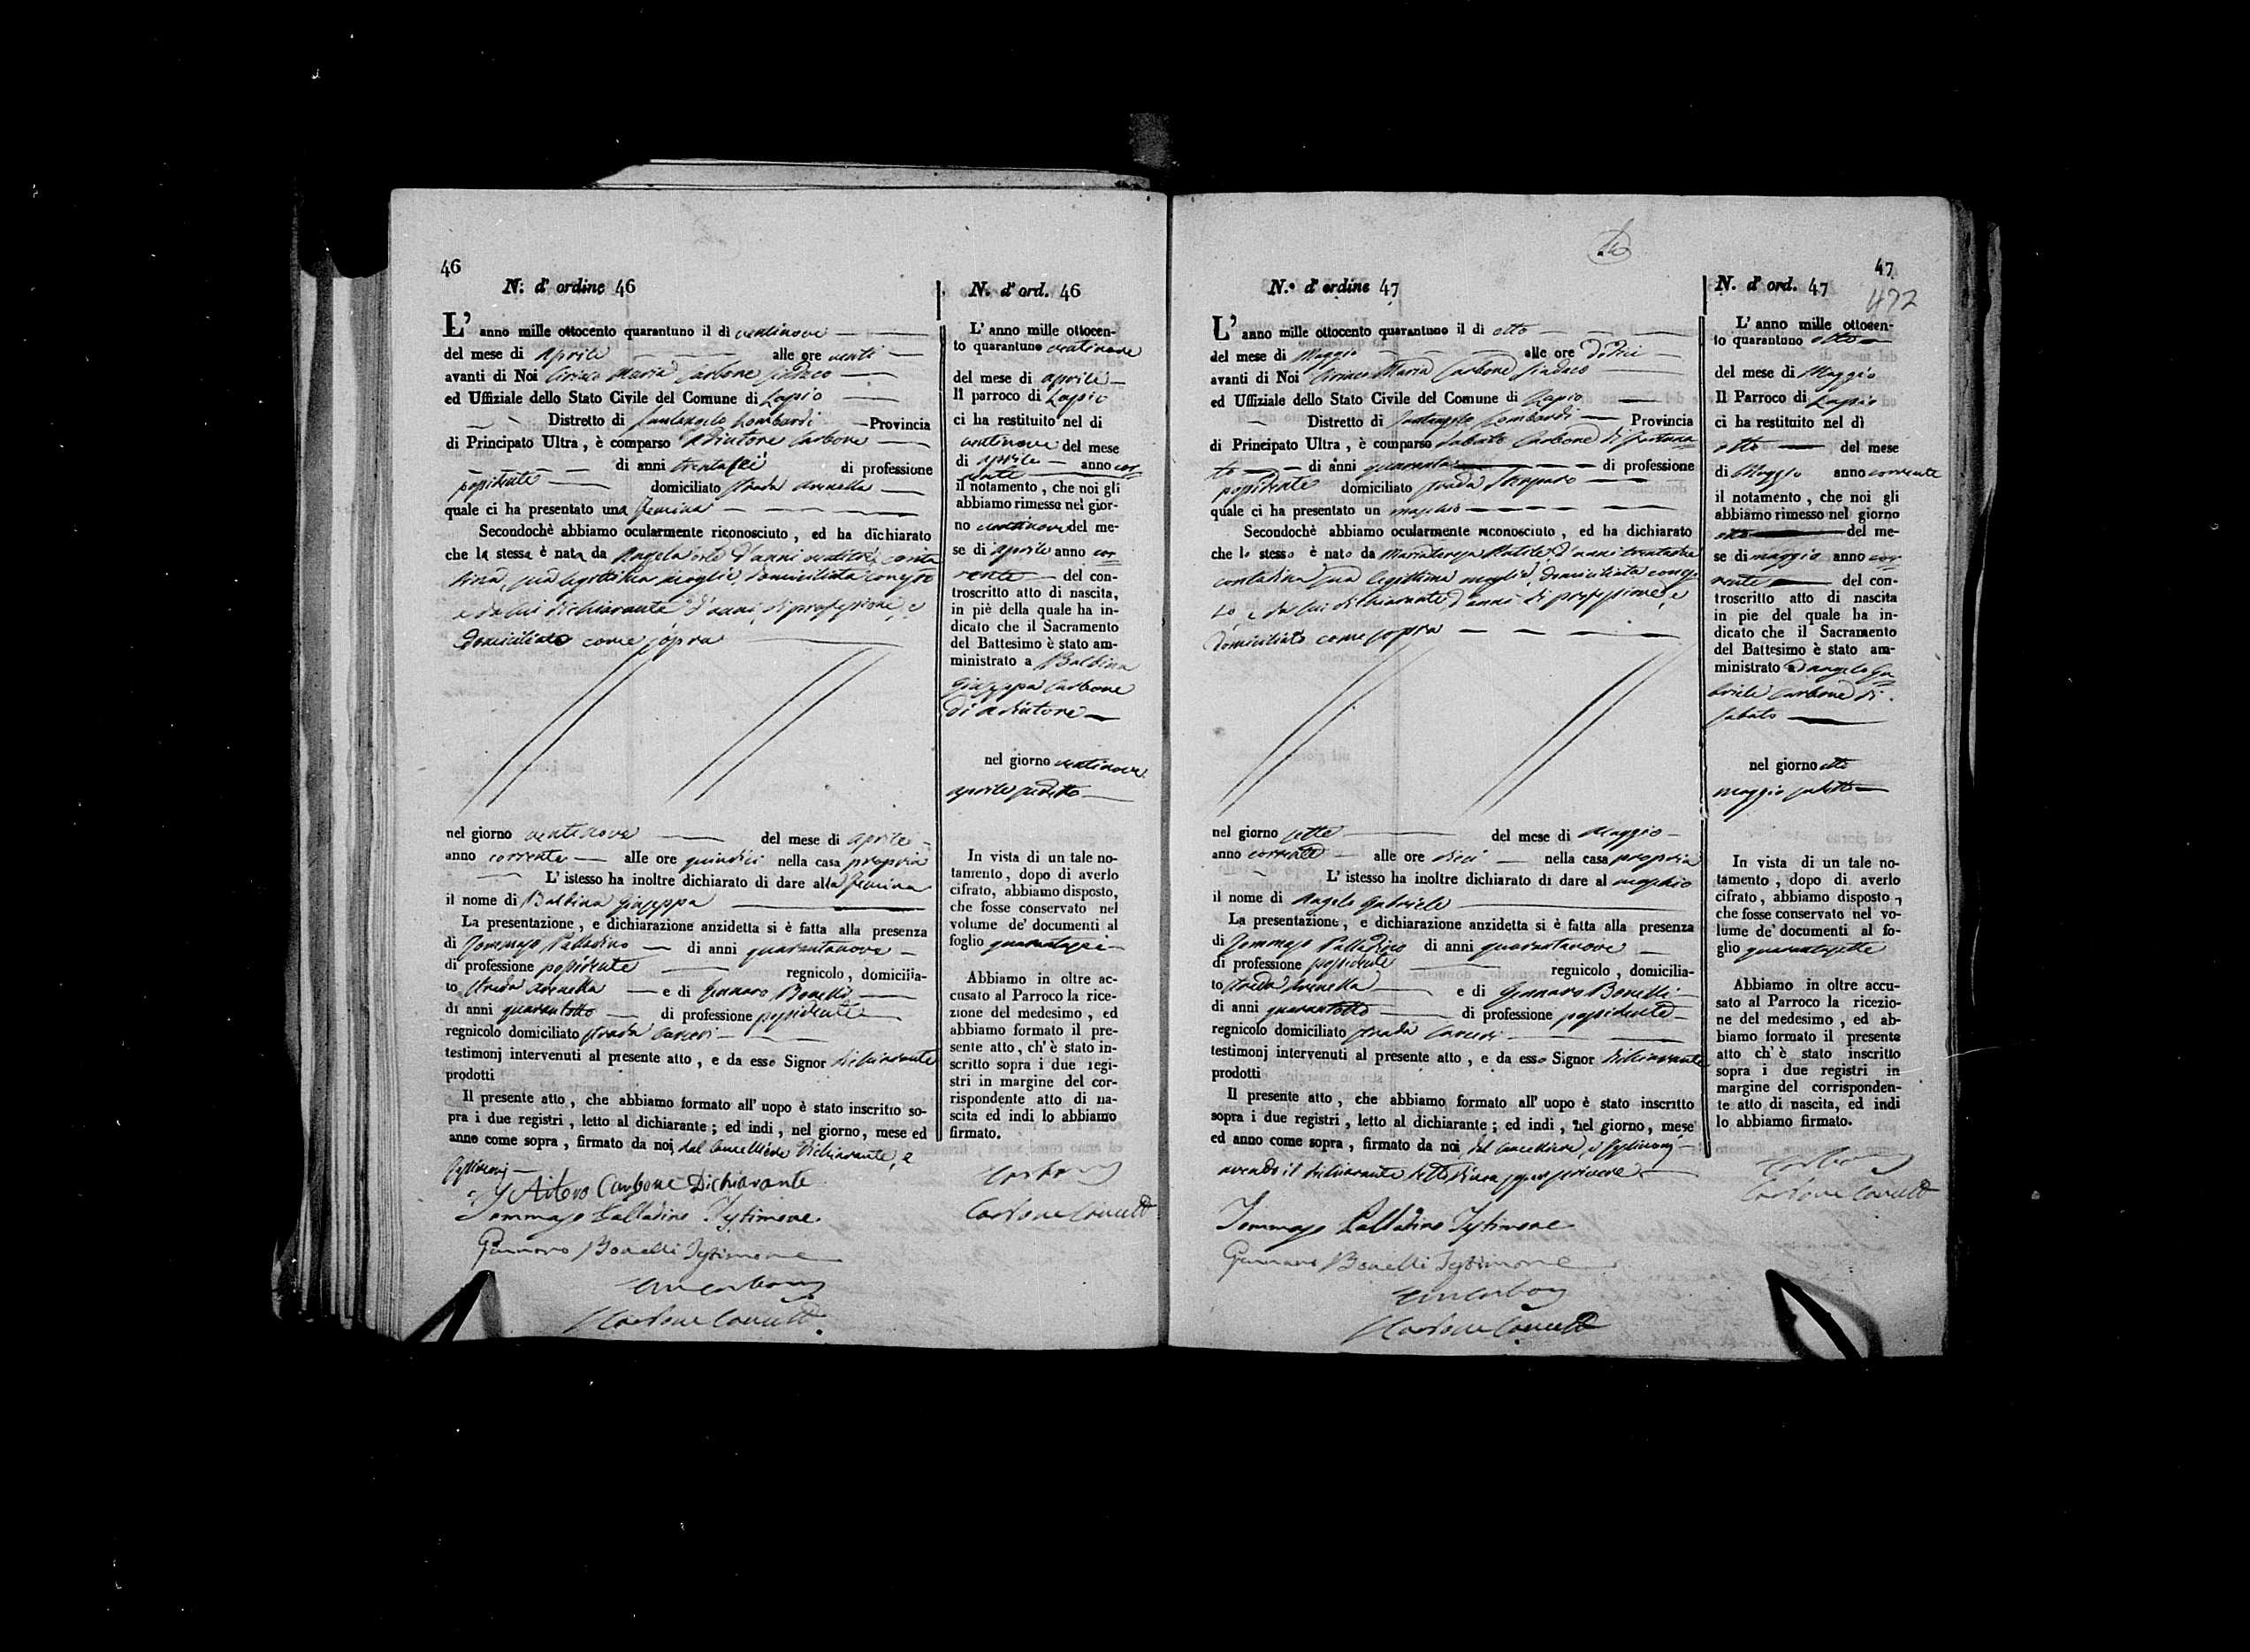 46
N. d' ordine 46
L' anno mille ottocento quarantuno il dì ventinove
del mese di Aprile alle ore venti
avanti di Noi Ciriaco Maria Carbone Sindaco
ed Uffiziale dello Stato Civile del Comune di Lapio
Distretto di Santangelo Lombardi Provincia
di Principato Ultra, è comparso Adiutore Carbone
di anni trentasei di professione
possidente domiciliato strada Arenella
quale ci ha presentato una femina
Secondochè abbiamo ocularmente riconosciuto, ed ha dichiarato
che la stessa è nata da Angela d'anni conta
dina, sua legittima moglie, domiciliata con esso
e da lui dichiarante d'anni, di professione, e
domiciliato come sopra
nel giorno ventinove del mese di aprile
anno corrente alle ore quindici nella casa propria
L' istesso ha inoltre dichiarato di dare alla femina
il nome di Balbina Giuseppa
La presentazione, e dichiarazione anzidetta si è fatta alla presenza
di Tommaso Palladino di anni quarantanove
di professione possidente regnicolo, domicilia-
to strada Arenella e di Gennaro Bonelli
di anni quarantotto di professione possidente
regnicolo domiciliato strada Carceri
testimonj intervenuti al presente atto, e da esso Signor dichiarante
prodotti
Il presente atto, che abbiamo formato all' uopo è stato inscritto so-
pra i due registri, letto al dichiarante; ed indi, nel giorno, mese ed
anno come sopra, firmato da noi, dal Cancelliere dichiarante, e
testimonj
Carbone Dichiarante
Tommaso Palladino Testimone
Gennaro Bonelli Testimone
Carbone
Carbone
N. d' ord. 46
L' anno mille ottocen-
to quarantuno ventinove
del mese di aprile
Il parroco di Lapio
ci ha restituito nel dì
ventinove del mese
di aprile anno cor
rente
il notamento, che noi gli
abbiamo rimesso nel gior-
no ventinove del me-
se di aprile anno cor
rente del con-
troscritto atto di nascita,
in piè della quale ha in-
dicato che il Sacramento
del Battesimo è stato am-
ministrato a Balbina
Giuseppa Carbone
di Adiutore
nel giorno ventinove
aprile sudetto
In vista di un tale no-
tamento, dopo di averlo
cifrato, abbiamo disposto,
che fosse conservato nel
volume de' documenti al
foglio quarantasei
Abbiamo in oltre ac-
cusato al Parroco la rice-
zione del medesimo, ed
abbiamo formato il pre-
sente atto, ch' è stato in-
scritto sopra i due regi-
stri in margine del cor-
rispondente atto di na-
scita ed indi lo abbiamo
firmato.
Carbone
Carbone
47
N.º d' ordine 47
L' anno mille ottocento quarantuno il dì otto
del mese di Maggio alle ore dodici
avanti di Noi Ciriaco Maria Carbone Sindaco
ed Uffiziale dello Stato Civile del Comune di Lapio
Distretto di Santangelo Lombardi Provincia
di Principato Ultra, è comparso Sabato Carbone di Fortuna
to di anni quaranta di professione
possidente domiciliato strada
quale ci ha presentato un maschio
Secondochè abbiamo ocularmente riconosciuto, ed ha dichiarato
che lo stesso è nato da Mariateresa d'anni
contadina sua legittima moglie, domiciliata con es
so, e da lui dichiarante d'anni di professione, e
domiciliato come sopra
nel giorno sette del mese di Maggio
anno corrente alle ore dieci nella casa propria
L' istesso ha inoltre dichiarato di dare al maschio
il nome di Angelo Gabriele
La presentazione, e dichiarazione anzidetta si è fatta alla presenza
di Tommaso Palladino di anni quarantanove
di professione possidente regnicolo, domicilia-
to strada Arenella e di Gennaro Bonelli
di anni quarantotto di professione possidente
regnicolo domiciliato strada Carceri
testimonj intervenuti al presente atto, e da esso Signor dichiarante
prodotti
Il presente atto, che abbiamo formato all' uopo è stato inscritto
sopra i due registri, letto al dichiarante; ed indi, nel giorno, mese
ed anno come sopra, firmato da noi, dal Cancelliere, e testimonj
avendo il dichiarante detto di non saper scrivere
Tommaso Palladino Testimone
Gennaro Bonelli Testimone
Carbone
Carbone
N. d' ord. 47
472
L' anno mille ottocen-
to quarantuno otto
del mese di Maggio
Il Parroco di Lapio
ci ha restituito nel dì
otto del mese
di Maggio anno corrente
il notamento, che noi gli
abbiamo rimesso nel giorno
otto del me-
se di maggio anno cor
rente del con-
troscritto atto di nascita
in pie del quale ha in-
dicato che il Sacramento
del Battesimo è stato am-
ministrato ad Angelo Ga
briele Carbone di
Sabato
nel giorno otto
maggio sudetto
In vista di un tale no-
tamento, dopo di averlo
cifrato, abbiamo disposto,
che fosse conservato nel vo-
lume de' documenti al fo-
glio quarantasette
Abbiamo in oltre accu-
sato al Parroco la ricezio-
ne del medesimo, ed ab-
biamo formato il presente
atto ch' è stato inscritto
sopra i due registri in
margine del corrisponden-
te atto di nascita, ed indi
lo abbiamo firmato.
Carbone
Carbone